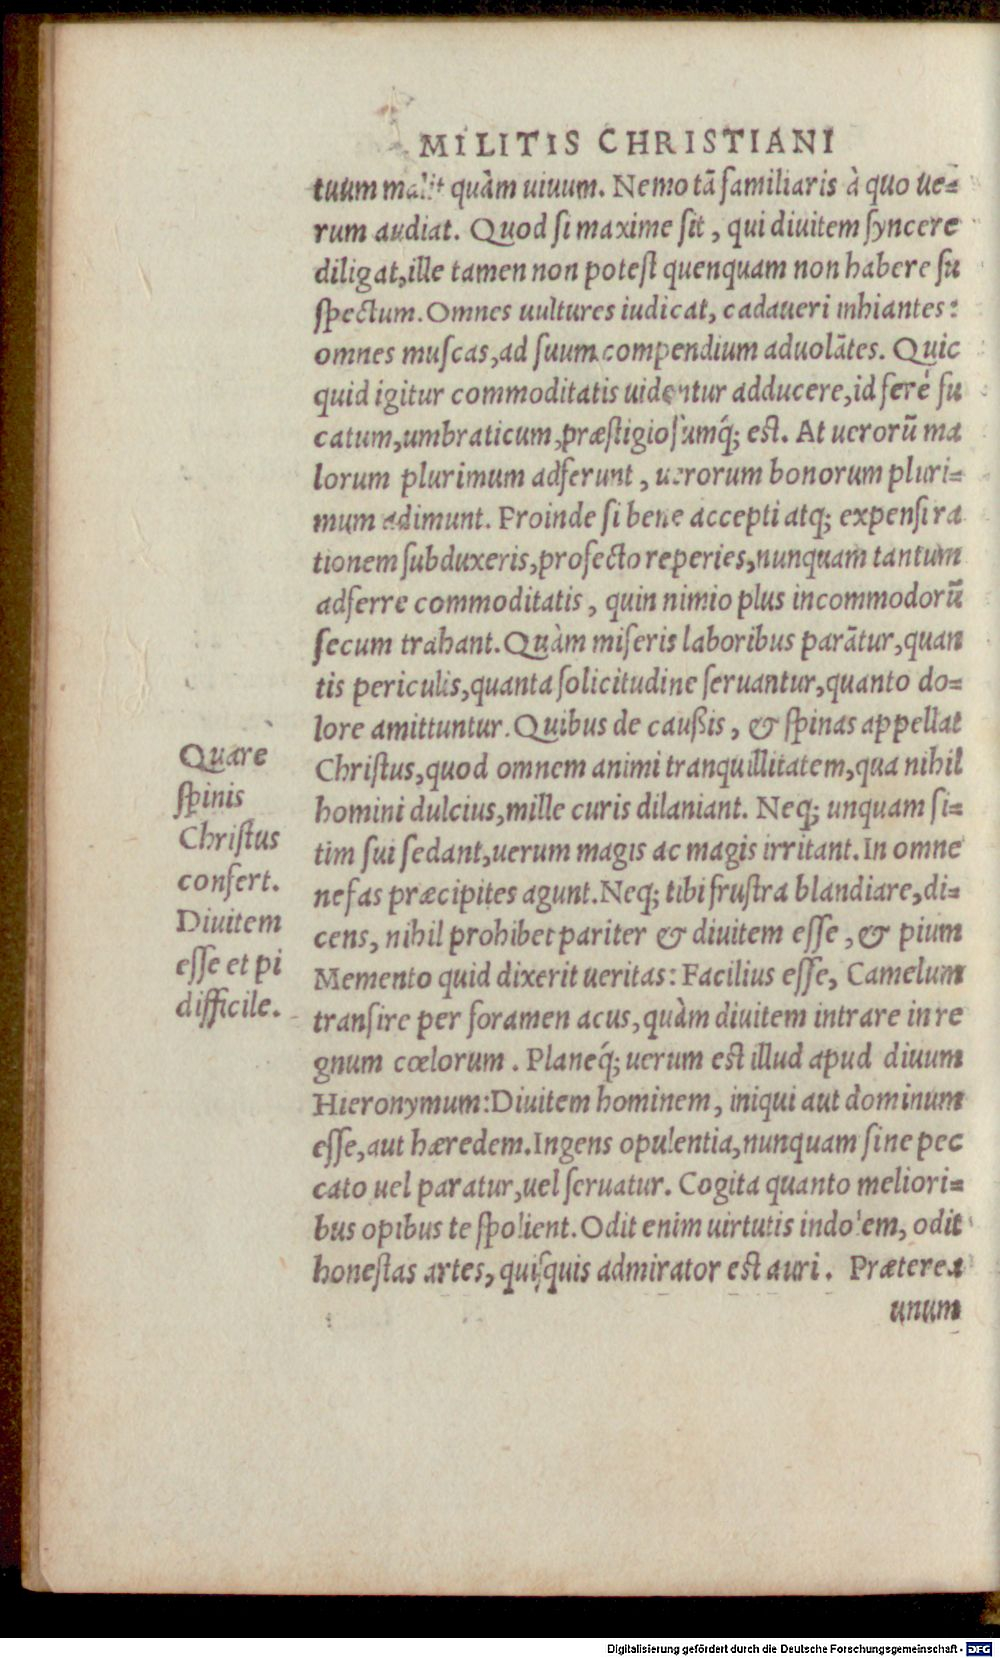 MILITIS CHRISTIANI
tuum malit quàm uiuum. Nemo tā familiaris à quo ue-
rum audiat. Quod si maxime sit, qui diuitem syncere
diligat, ille tamen non potest quenquam non habere su
spectum. Omnes uultures iudicat, cadaueri inhiantes:
omnes muscas, ad suum compendium aduolātes. Quic
quid igitur commoditatis uidentur adducere, id ferè fu
catum, umbraticum, præstigiosumq́; est. At uerorū ma
lorum plurimum adferunt, uerorum bonorum pluri-
mum adimunt. Proinde si bene accepti atq; expensi ra
tionem subduxeris, profecto reperies, nunquam tantum
adferre commoditatis, quin nimio plus incommodorū
secum trahant. Quàm miseris laboribus parātur, quan
tis periculis, quanta solicitudine seruantur, quanto do-
lore amittuntur. Quibus de caußis, & spinas appellat
Christus, quod omnem animi tranquillitatem, qua nihil
homini dulcius, mille curis dilaniant. Neq; unquam si-
tim sui sedant, uerum magis ac magis irritant. In omne
nefas præcipites agunt. Neq; tibi frustra blandiare, di-
cens, nihil prohibet pariter & diuitem esse, & pium
Memento quid dixerit ueritas: Facilius esse, Camelum
transire per foramen acus, quàm diuitem intrare in re
gnum cœlorum. Planeq́; uerum est illud apud diuum
Hieronymum: Diuitem hominem, iniqui aut dominum
esse, aut hæredem. Ingens opulentia, nunquam sine pec
cato uel paratur, uel seruatur. Cogita quanto meliori-
bus opibus te spolient. Odit enim uirtutis indolem, odit
honestas artes, quisquis admirator est auri. Præterea
unum
Quare
spinis
Christus
confert.
Diuitem
esse et pi
difficile.
Digitalisierung gefördert durch die Deutsche Forschungsgemeinschaft - DFG